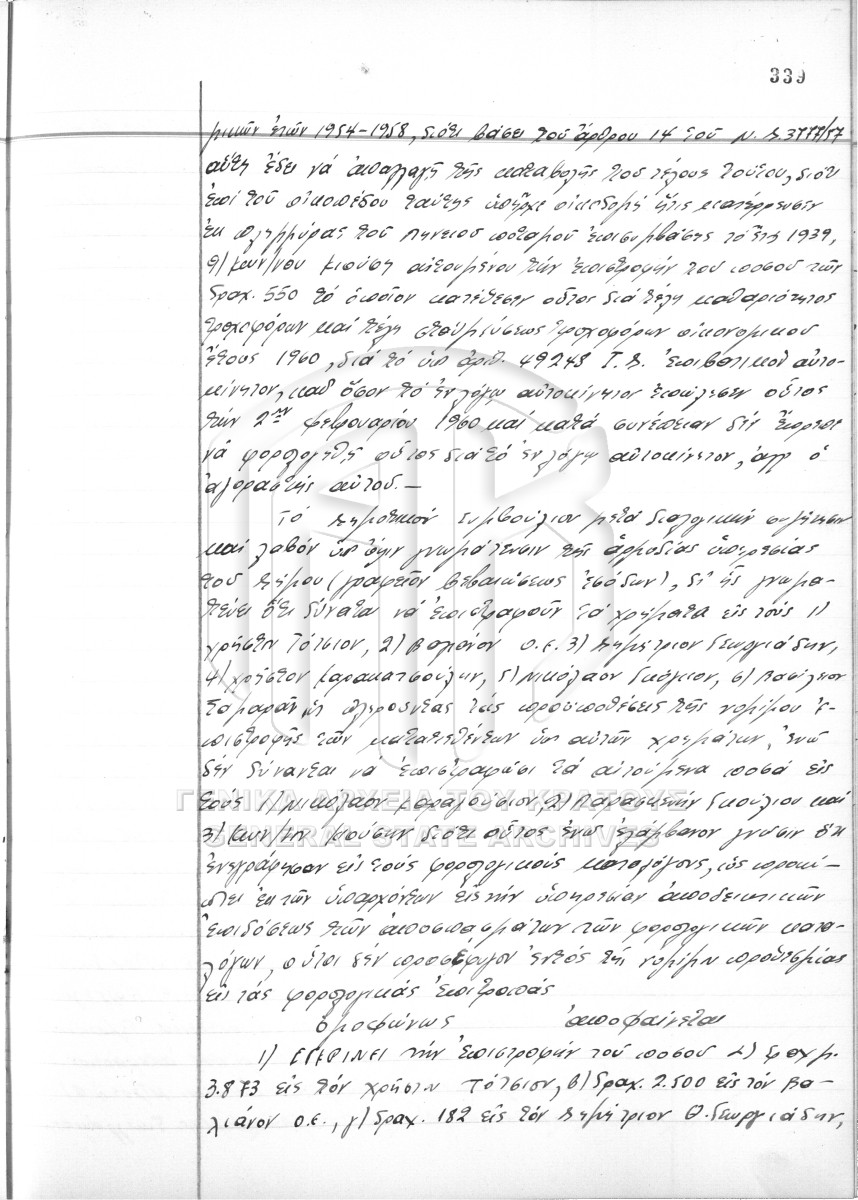 339
μικῶν ἐτῶν 1954-1958, διότι βάσει τοῦ ἄρθρου 14 τοῦ Ν.Δ. 3777/57
αὕτη ἔδει νά ἀπαλλαγῇ τῆς καταβολῆς τοῦ τέλους τούτου, διότι
ἐπί τοῦ οἰκοπέδου ταύτης ὑπῆρχε οἰκοδομή ἥτις κατέρρευσεν
ἐκ πλημμύρας τοῦ Πηνειοῦ ποταμοῦ ἐπισυμβάσης τό ἔτος 1939,
9) Κων/νου Μιούση αἰτουμένου τήν ἐπιστροφήν τοῦ ποσοῦ τῶν
δραχ. 550 τό ὁποῖον κατέθεσεν οὗτος διά τέλη καθαριότητος
τροχοφόρων καί τέλη σταθμεύσεως τροχοφόρων οἰκονομικοῦ
ἔτους 1960, διά τό ὑπ' ἀριθ. 49248 Ι.Χ. ἐπιβατικοῦ αὐτο-
κινήτου, καθ' ὅσον τό ἐν λόγῳ αὐτοκίνητον ἐπώλησεν οὗτος
τήν 2αν Φεβρουαρίου 1960 καί κατά συνέπειαν δέν ἔπρεπε
νά φορολογηθῇ οὗτος διά τό ἐν λόγῳ αὐτοκίνητον, ἀλλ' ὁ
ἀγοραστής αὐτοῦ.-
Τό Δημοτικόν Συμβούλιον μετά διαλογικήν συζήτησιν
καί λαβόν ὑπ' ὄψιν γνωμάτευσιν τῆς ἁρμοδίας ὑπηρεσίας
τοῦ Δήμου (γραφεῖον Βεβαιώσεως ἐσόδων), δι' ἧς γνωμα-
τεύει ὅτι δύναται νά ἐπιστραφοῦν τά χρήματα εἰς τούς 1)
Χρῆστον Τότσιον, 2) Βαλιάνον Ο.Ε. 3) Δημήτριον Γεωργιάδην,
4) Χρῆστον Καρακατσούλην, 5) Νικόλαον Γκόγκον, 6) Βασίλειον
Σαμαρᾶν ὡς πληροῦντας τάς προϋποθέσεις τῆς νομίμου ἐ-
πιστροφῆς τῶν κατατεθέντων ὑπ' αὐτῶν χρημάτων, ἐνῶ
δέν δύνανται νά ἐπιστραφῶσι τά αἰτούμενα ποσά εἰς
τούς 1) Νικόλαον Καραμούσιον, 2) Παρασκευήν Γκουλίου καί
3) Κων/νον Μιούσην διότι οὗτοι ἐνῶ ἐλάμβανον γνῶσιν ὅτι
ἐνεγράφησαν εἰς τούς φορολογικούς καταλόγους, ὡς προκύ-
πτει ἐκ τῶν ὑπαρχόντων εἰς τήν ὑπηρεσίαν ἀποδεικτικῶν
ἐπιδόσεως τῶν ἀποσπασμάτων τῶν φορολογικῶν κατα-
λόγων, οὗτοι δέν προσέφυγον ἐντός τῆς νομίμου προθεσμίας
εἰς τάς φορολογικάς ἐπιτροπάς
ὁμοφώνως ἀποφαίνεται
1) ΕΓΚΡΙΝΕΙ τήν ἐπιστροφήν τοῦ ποσοῦ α) δραχμ.
3.873 εἰς τόν Χρῆστον Τότσιον, β) δραχ. 2.500 εἰς τόν Βα-
λιάνον Ο.Ε., γ) δραχ. 182 εἰς τόν Δημήτριον Θ. Γεωργιάδην,
ΓΕΝΙΚΑ ΑΡΧΕΙΑ ΤΟΥ ΚΡΑΤΟΥΣ
GENERAL STATE ARCHIVES